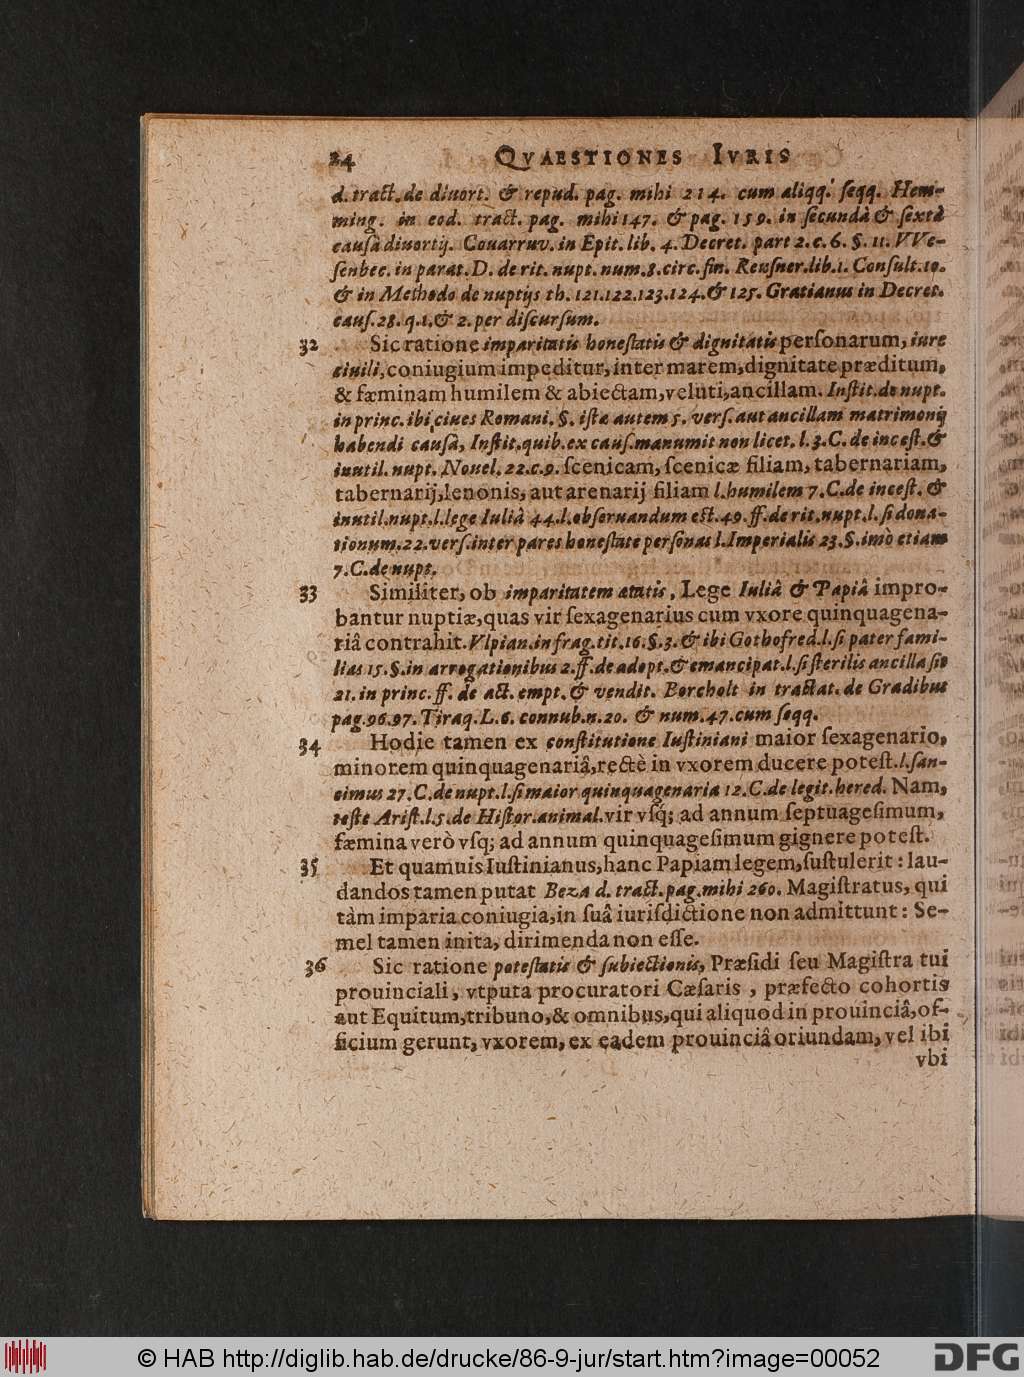 24 QVAESTIONES IVRIS
d. tract. de diuort. & repud. pag. mihi 214. cum aliqq. ſeqq. Hem-
ming. in eod. tract. pag. mihi 147. & pag. 159. in ſecundâ & ſextâ
cauſâ diuortij. Couarruv. in Epit. lib. 4. Decret. part 2. c. 6. §. 11. VVe-
ſenbec. in parat. D. de rit. nupt. num. 8. circ. fin. Reuſner. lib. 1. Conſult. 10.
& in Methodo de nuptijs th. 121. 122. 123. 124. & 125. Gratianus in Decret.
cauſ. 28. q. 1. & 2. per diſcurſum.
32 Sic ratione imparitatis honeſtatis & dignitatis perſonarum, iure
ciuili, coniugium impeditur, inter marem, dignitate præditum,
& fæminam humilem & abiectam, veluti, ancillam. Inſtit. de nupt.
in princ. ibi, ciues Romani. §. iſte autem 5. verſ. aut ancillam matrimonij
habendi cauſâ, Inſtit. quib. ex cauſ. manumit non licet. l. 3. C. de inceſt. &
inutil. nupt. Nouel. 22. c. 9. ſcenicam, ſcenicæ filiam, tabernariam,
tabernarij, lenonis, aut arenarij filiam l. humilem 7. C. de inceſt. &
inutil. nupt. l. lege Iuliâ 44. l. obſeruandum eſt. 49. ff. de rit. nupt. l. ſi dona-
tionum. 22. verſ. inter pares honeſtate perſonas l. Imperialis 23. §. imò etiam
7. C. de nupt.
33 Similiter, ob imparitatem ætatis, Lege Iuliâ & Papiâ impro-
bantur nuptiæ, quas vir ſexagenarius cum vxore quinquagena-
riâ contrahit. Vlpian. in frag. tit. 16. §. 3. & ibi Gothofred. l. ſi pater fami-
lias 15. §. in arrogationibus 2. ff. de adopt. & emancipat. l. ſi ſterilis ancilla ſit
21. in princ. ff. de act. empt. & vendit. Borcholt in tractat. de Gradibus
pag. 96. 97. Tiraq. L. 6. connub. n. 20. & num. 47. cum ſeqq.
34 Hodie tamen ex conſtitutione Iuſtiniani maior ſexagenario,
minorem quinquagenariâ, rectè in vxorem ducere poteſt. l. ſan-
cimus 27. C. de nupt. l. ſi maior quinquagenaria 12. C. de legit. hered. Nam,
teſte Ariſt. l. 5. de Hiſtor. animal. vir vſq; ad annum ſeptuageſimum,
fæmina verò vſq; ad annum quinquageſimum gignere poteſt.
35 Et quamuis Iuſtinianus, hanc Papiam legem, ſuſtulerit: lau-
dandos tamen putat Beza d. tract. pag. mihi 260. Magiſtratus, qui
tàm imparia coniugia, in ſuâ iurisdictione non admittunt: Se-
mel tamen inita, dirimenda non eſſe.
36 Sic ratione poteſtatis & ſubiectionis, Præſidi ſeu Magiſtra tui
prouinciali, vtputa procuratori Cæſaris, præfecto cohortis
aut Equitum, tribuno, & omnibus, qui aliquod in prouinciâ, of-
ficium gerunt, vxorem, ex eadem prouinciâ oriundam, vel ibi
vbi
© HAB http://diglib.hab.de/drucke/86-9-jur/start.htm?image=00052
DFG